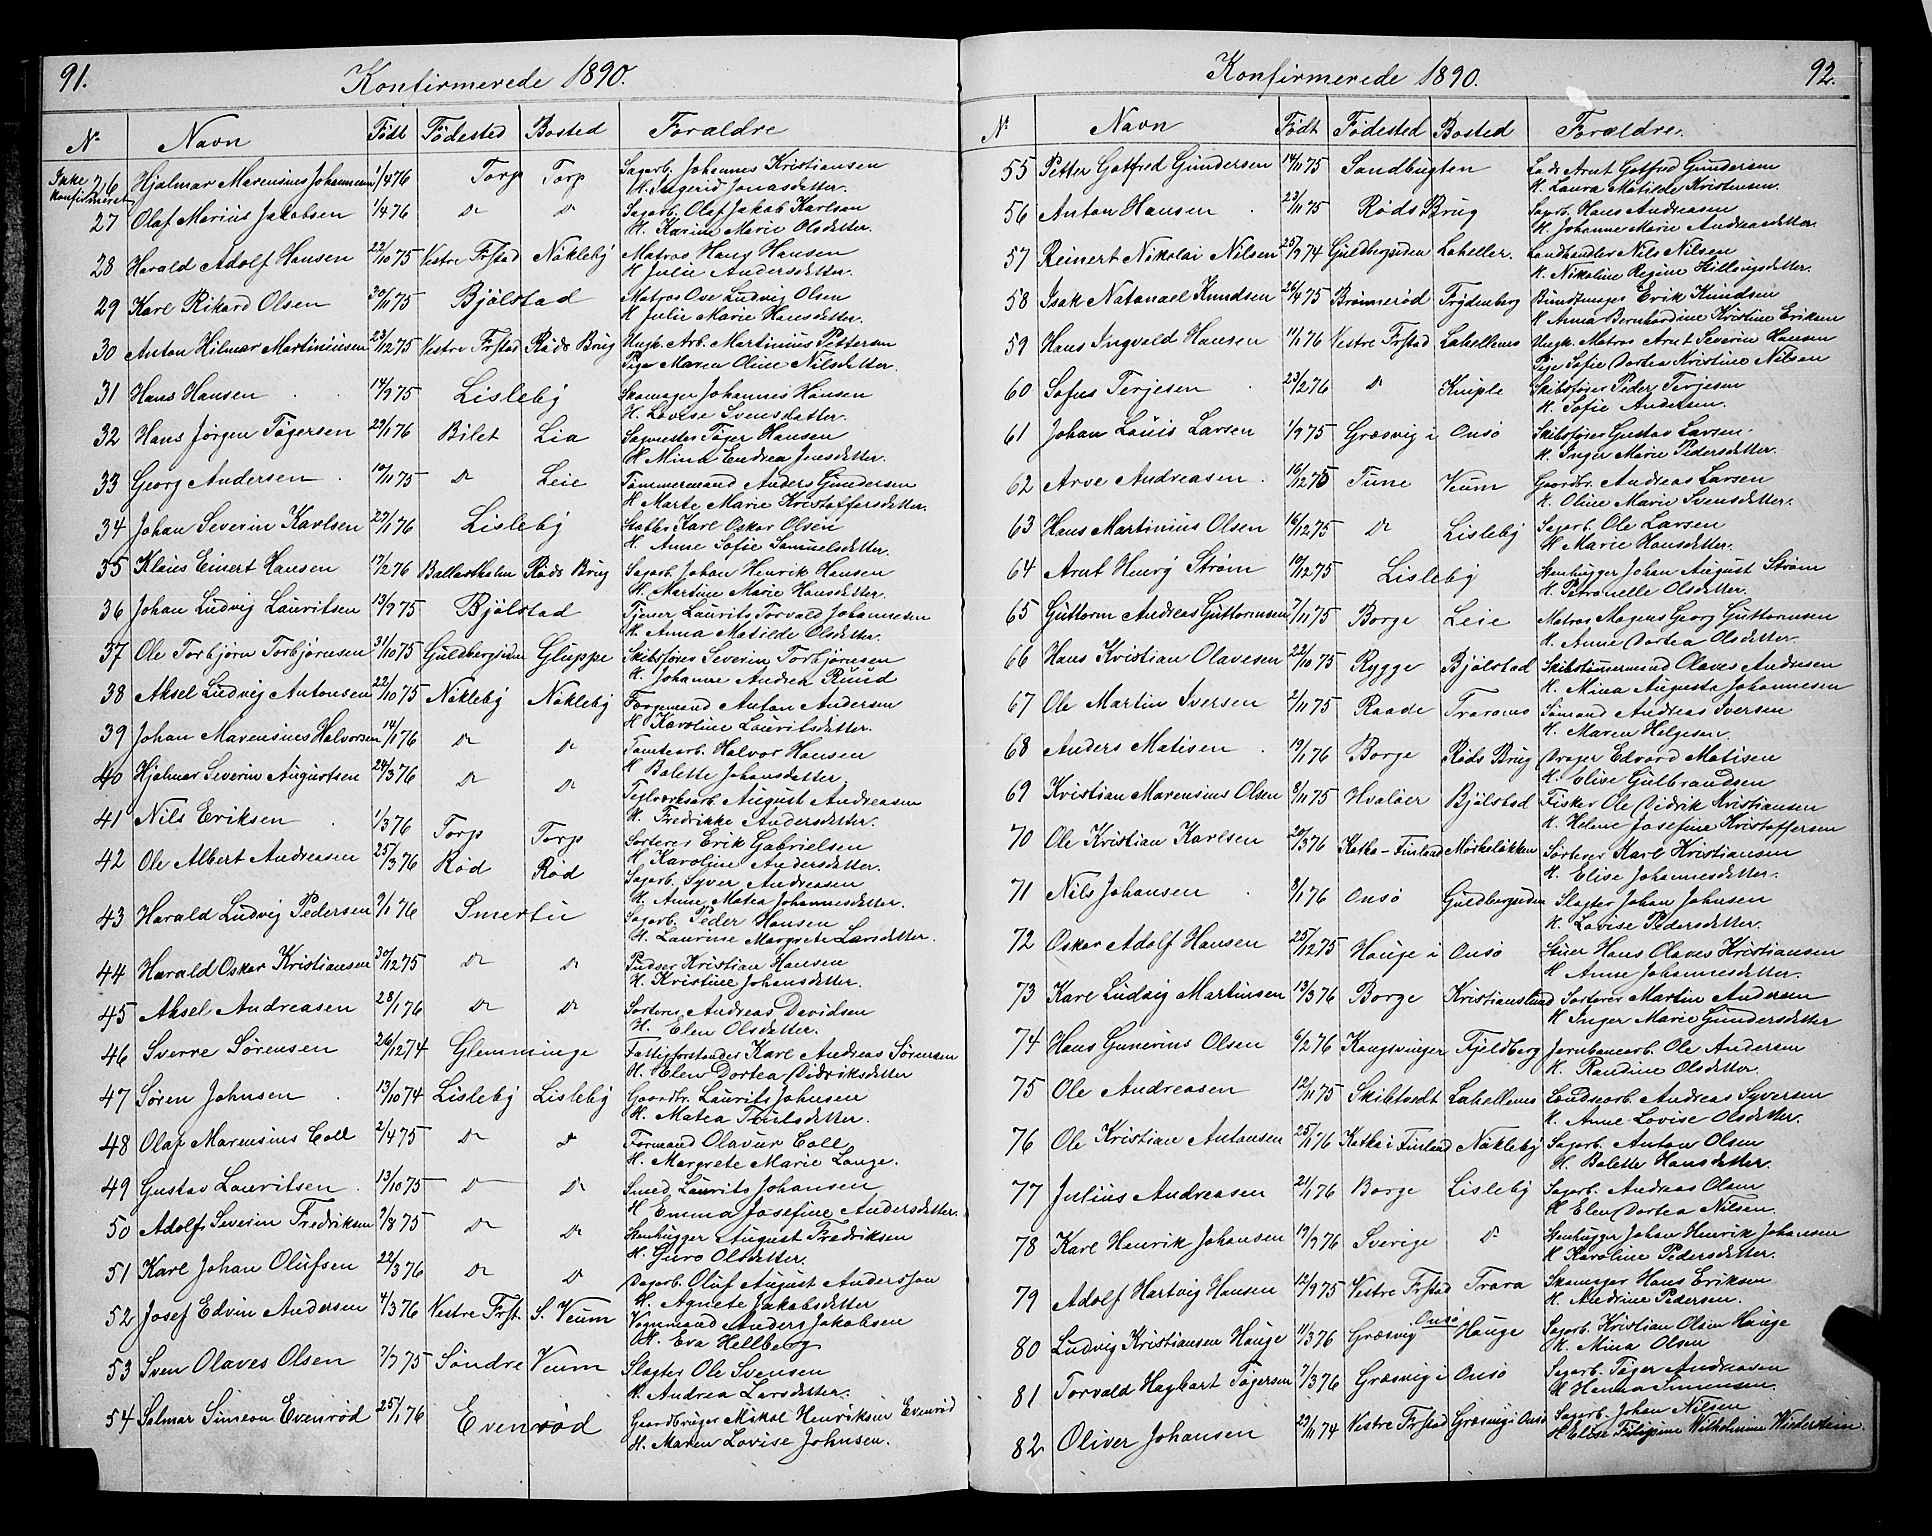 91.
Konfirmerede 1890.
No Navn Født Fødested Bosted Forældre
Ikke konfirmeret 26 Hjalmar Marensius Johannesen 1/4 76 Torp Torp Sagarb. Johannes Kristiansen
H. Ingerid Jonasdatter.
27 Olaf Marius Jakobsen 1/4 76 Do Do Sagarb. Olaf Jakob Karlsen
H. Karine Marie Olsdatter.
28 Harald Adolf Hansen 22/10 75 Vestre Frstad Nøkleby Matros Hans Hansen
H. Julie Andersdatter.
29 Karl Rikard Olsen 30/11 75 Bjølstad Matros Ove Ludvig Olsen
H. Julie Marie Hansdatter.
30 Anton Hilmar Martiniusen 23/12 75 Vestre Frstad Røds Brug Ungk. Arb. Martinius Pettersen
Pige Maren Oline Nilsdatter.
31 Hans Hansen 14/9 75 Lisleby Skomager Johannes Hansen
H. Lovise Svensdatter.
32 Hans Jørgen Tøgersen 22/1 76 Bilet Lia Sagmester Tøger Hansen
H. Mina Endrea Jensdatter.
33 Georg Andersen 10/11 75 Do Leie Tømmermand Anders Gundersen
H. Marte Marie Kristoffersdatter.
34 Johan Severin Karlsen 27/1 76 Lisleby Stabbr. Karl Oskar Olsen
H. Anne Sofie Samuelsdatter.
35 Klaus Einert Hansen 17/2 76 Ballastholm Røds Brug Sagarb. Johan Henrik Hansen
H. Martine Marie Hansdatter.
36 Johan Ludvig Lauritsen 13/9 75 Bjølstad Tjener Laurits Torvald Johannesen
H. Anna Matilde Olsdatter.
37 Ole Torbjørn Torbjørnsen 31/10 75 Guldbergsiden Gluppe Skibsfører Severin Torbjørnsen
H. Johanne Andrea Ruud
38 Aksel Ludvig Antonsen 22/10 75 Nøkleby Nøkleby Færgemand Anton Andersen
H. Karoline Lauritsdatter.
39 Johan Marensius Halvorsen 14/1 76 Do Do Tomtearb. Halvor Hansen
H. Bolette Johansdatter.
40 Hjalmar Severin Augustsen 24/3 76 Do Do Teglværksarb. August Andreasen
H. Fredrikke Andersdatter.
41 Nils Eriksen 1/3 76 Torp Torp Sorterer Erik Gabrielsen
H. Karoline Andersdatter.
42 Ole Albert Andreasen 25/3 76 Rød Rød Sagarb. Syver Andreasen
H. Anne Matea Johannesdatter.
43 Harald Ludvig Pedersen 9/1 76 Smertu Sagarb. Peder Hansen
H. Laurine Margrete Larsdatter.
44 Harald Oskar Kristiansen 30/12 75 Do Do Pudser Kristian Hansen
H. Kristine Johansdatter.
45 Aksel Andreasen 28/1 76 Do Do Sorterer Andreas Davidsen
H. Elen Olsdatter.
46 Sverre Sørensen 26/12 74 Glemminge Fattigforstander Karl Andreas Sørensen
H. Elen Dortea Didriksdatter
47 Søren Johnsen 13/10 74 Lisleby Lisleby Gaardbr. Laurits Johnsen
H. Matea Truelsdatter.
48 Olaf Marensius Coll 2/4 75 Do Do Formand Olavus Coll
H. Margrete Marie Lange.
49 Gustav Lauritsen 13/10 75 Do Do Smed Laurits Johansen
H. Emma Josefine Andersdatter.
50 Adolf Severin Fredriksen 7/8 75 Do Do Stenhugger August Fredriksen
H. Guro Olsdatter.
51 Karl Johan Olufsen 22/3 76 Do Do Dagarb. Oluf August Andersson
H. Agnete Jakobsdatter
52 Josef Edvin Andersen 4/3 76 Vestre Frst. S. Veum Vognmand Anders Jakobsen
H. Eva Hellberg
53 Sven Olaves Olsen 7/7 75 Søndre Veum Slagter Ole Svensen
H. Andrea Larsdatter.
54 Salmar Simeon Evenrød 25/1 76 Evenrød Gaardbruger Mikal Henriksen Evenrød
H. Maren Lovise Johnsen.
Konfirmerede 1890. 92.
No Navn Født Fødested Bosted Forældre.
55 Petter Gotfred Gundersen 14/11 75 Sandbugten Lods Arnt Gotfred Gundersen
H. Laura Matilde Kristensen.
56 Anton Hansen 23/11 75 Røds Brug Sagarb. Hans Andreasen
H. Johanne Marie Andreasdatter.
57 Reinert Nikolai Nilsen 25/9 74 Guldbergsiden Laheller. Landhandler Nils Nilsen
H. Nikoline Regine Hillingsdatter.
58 Isak Natanael Knudsen 26/4 75 Brønnerød Trydenberg Bundtmager Erik Knudsen
H. Anna Bernhardine Kristine Eriksen
59 Hans Ingvald Hansen 11/1 76 Vestre Frstad Lahellens Ungk. Matros Arnt Severin Hansen
Pige Sofie Dortea Kristine Nilsen
60 Sofus Terjesen 23/2 76 Do Kniple Skibsfører Peder Terjesen
H. Sofie Andersen.
61 Johan Louis Larsen 1/9 75 Græsvig i Onsø Skibsfører Gustav Larsen.
H. Inger Marie Pedersdatter.
62 Arve Andreasen 16/12 75 Tune Veum Gaardbr. Andreas Larsen
H. Oline Marie Svensdatter.
63 Hans Martinius Olsen 16/12 75 Do Lisleby Sagarb. Ole Larsen
H. Marie Hansdatter.
64 Arnt Henry Strøm 10/12 75 Lisleby Stenhugger Johan August Strøm
H. Petronelle Olsdatter.
65 Guttorm Andreas Guttormsen 7/11 75 Borge Leie Matros Mogens Georg Guttormsen
H. Anne Dortea Olsdatter.
66 Hans Kristian Olavesen 22/10 75 Rygge Bjølstad Skibstimmermand Olaves Andresen
H. Mina Augusta Johannesen
67 Ole Martin Iversen 2/11 75 Raade Traranes Sømand Andreas Iversen
H. Maren Helgesen.
68 Anders Matisen 19/1 76 Borge Røds Brug Drager Edvard Matisen
H. Elise Gulbrandsen
69 Kristian Marensius Olsen 8/11 75 Hvaløer Bjølstad Fisker Ole Didrik Kristiansen
H. Helene Josefine Kristoffersen
70 Ole Kristian Karlsen 20/3 76 Kotka-Finland Mørkeløkken Sorterer Karl Kristiansen
H. Elise Johannesdatter.
71 Nils Johansen 8/1 76 Onsø Guldbergsiden Slagter Johan Johnsen
H. Lovise Pedersdatter.
72 Oskar Adolf Hansen 25/12 75 Hauge i Onsø Stuer Hans Olaves Kristiansen
H. Anne Johannesdatter.
73 Karl Ludvig Martinsen 13/3 76 Borge Kristianslund Sorterer Martin Andersen
H. Inger Marie Gundersdatter
74 Hans Gunerius Olsen 6/2 76 Kongsvinger Fjeldberg Jernbanearb. Ole Andersen
H. Randine Olsdatter.
75 Ole Andreasen 12/11 75 Skibtvedt Lahellens Landmarb. Andreas Syversen
H. Anne Lovise Olsdatter.
76 Ole Kristian Antonsen 25/1 76 Kotka i Finland Nøkleby Sagarb. Anton Olsen
H. Bolette Hansdatter.
77 Julius Andreasen 21/1 76 Borge Lisleby Sagarb. Andreas Olsen
H. Elen Dortea Nilsen.
78 Karl Henrik Johansen 19/9 76 Sverige Do Stenhugger Johan Henrik Johansen
H. Karoline Pedersdatter.
79 Adolf Hartvig Hansen 12/9 75 Vestre Frstad Trara Skomager Hans Eriksen
H. Andrine Pedersen.
80 Ludvig Kristiansen Hauge 11/3 76 Græsvig Onsø Hauge Sagarb. Kristian Olsen Hauge
H. Mina Olsen
81 Torvald Hagbart Tøgersen 7/3 76 Græsvig i Onsø Sagarb. Tøger Andreasen
H. Hanna Simensen.
82 Oliver Johansen 23/11 74 Vestre Frstad Græsvig i Onsø Sagarb. Johan Nilsen
H. Elise Filipine Wilhelmine Wiederstein.